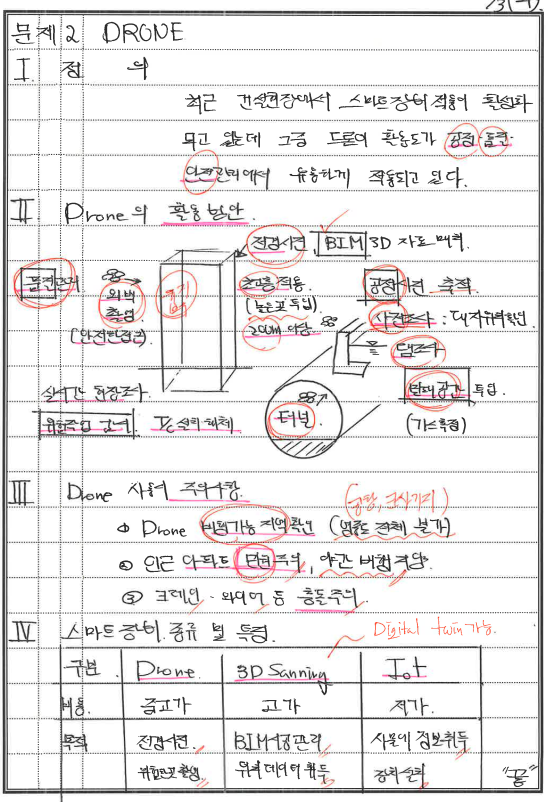 문제 2 DRONE
I. 정 의
최근 건설현장에서 스마트장비 적용이 활성화
되고 있는데 그중 드론의 활용도가 공정·품질·
안전관리에서 유용하게 적용되고 있다.
II Drone의 활용방안.
전경사진 BIM 3D 자료 매핑
품질관리
외벽
촬영
(안전점검)
초고층 적용
(높은곳 투입)
200m 이상
공정사진 축적
사전조사 : 대지위치확인.
댐조사
실시간 현장조사
위험작업 감시
터널
밀폐공간 투입.
(가스측정)
III Drone 사용시 주의사항.
(공항, 군사기지)
① Drone 비행가능 지역 확인 (영종도 전체 불가)
② 인근 아파트 민원주의, 야간 비행 지양.
③ 크레인·와이어 등 충돌주의.
IV 스마트장비 종류 및 특징.
Digital twin 가능.
구분. Drone. 3D Sanning IoT
비용. 중고가 고가 저가.
목적 전경사진. BIM시공관리 사물에 정보취득
위험장소촬영 위치데이터취득 장치설치
"끝"